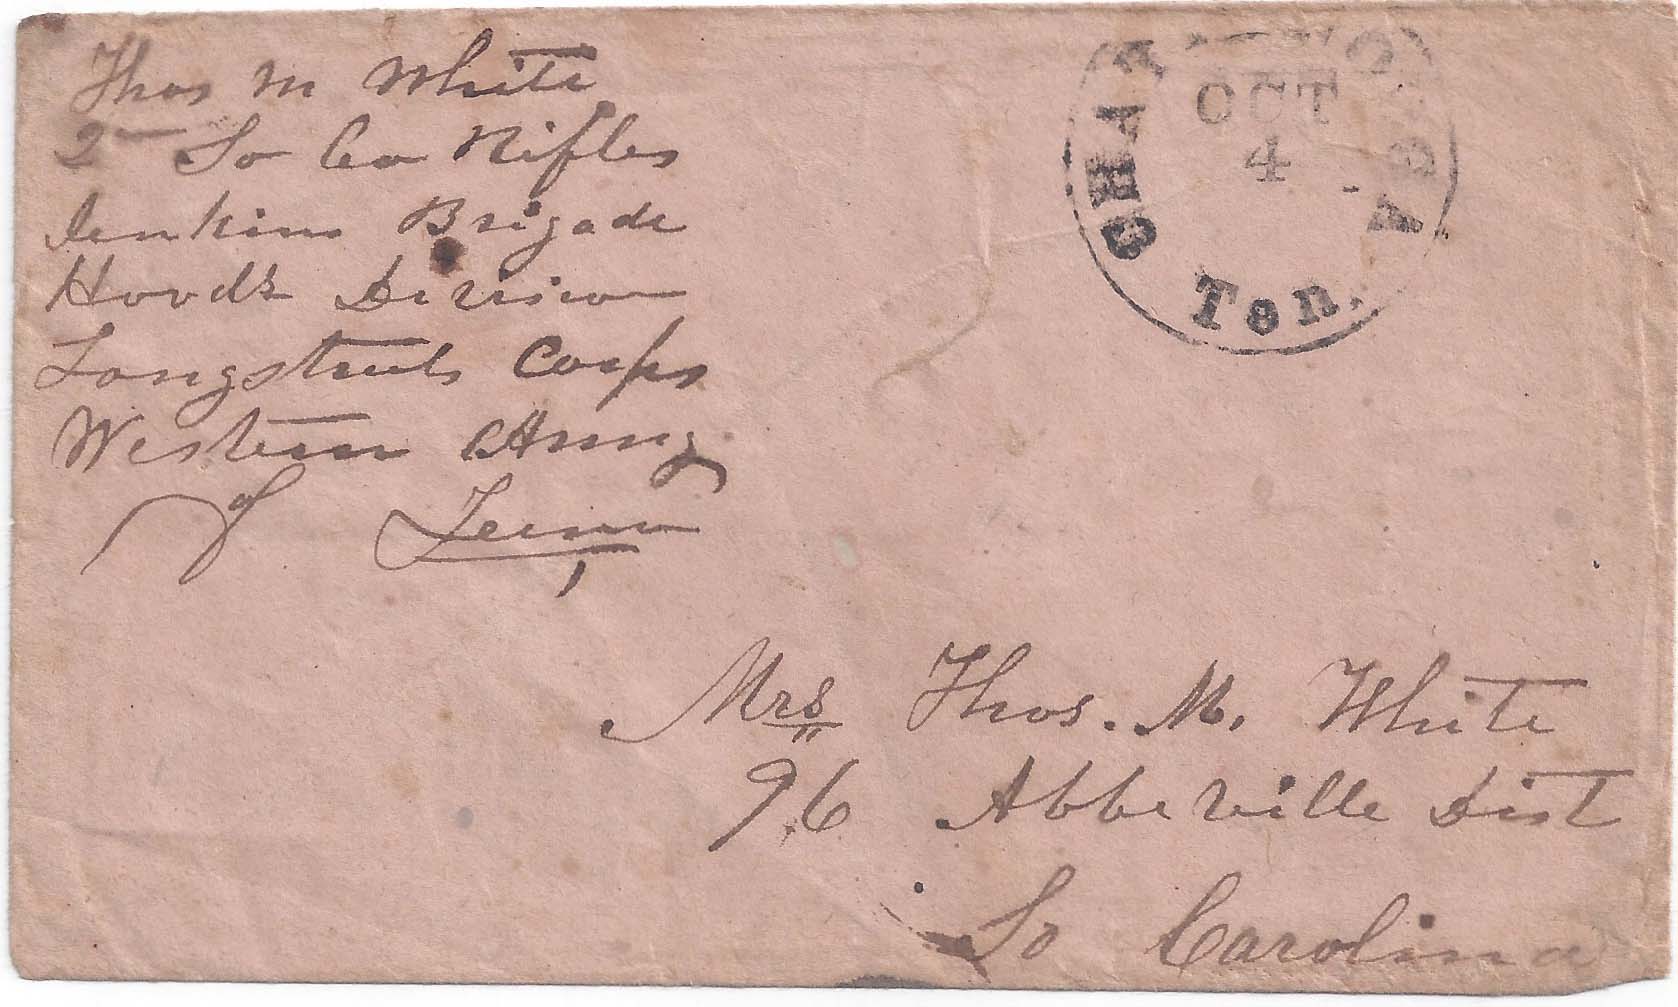 Thos M White
2 So Ca Rifles
Jenkins Brigade
Hoods Division
Longstreets Corps
Western Army
of Tenn
CHATTANOOGA
OCT
4
Ten.
Mrs Thos. M. White
96 Abbeville Dist
So Carolina